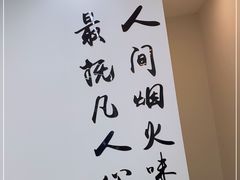 人间烟火味
最抚凡人